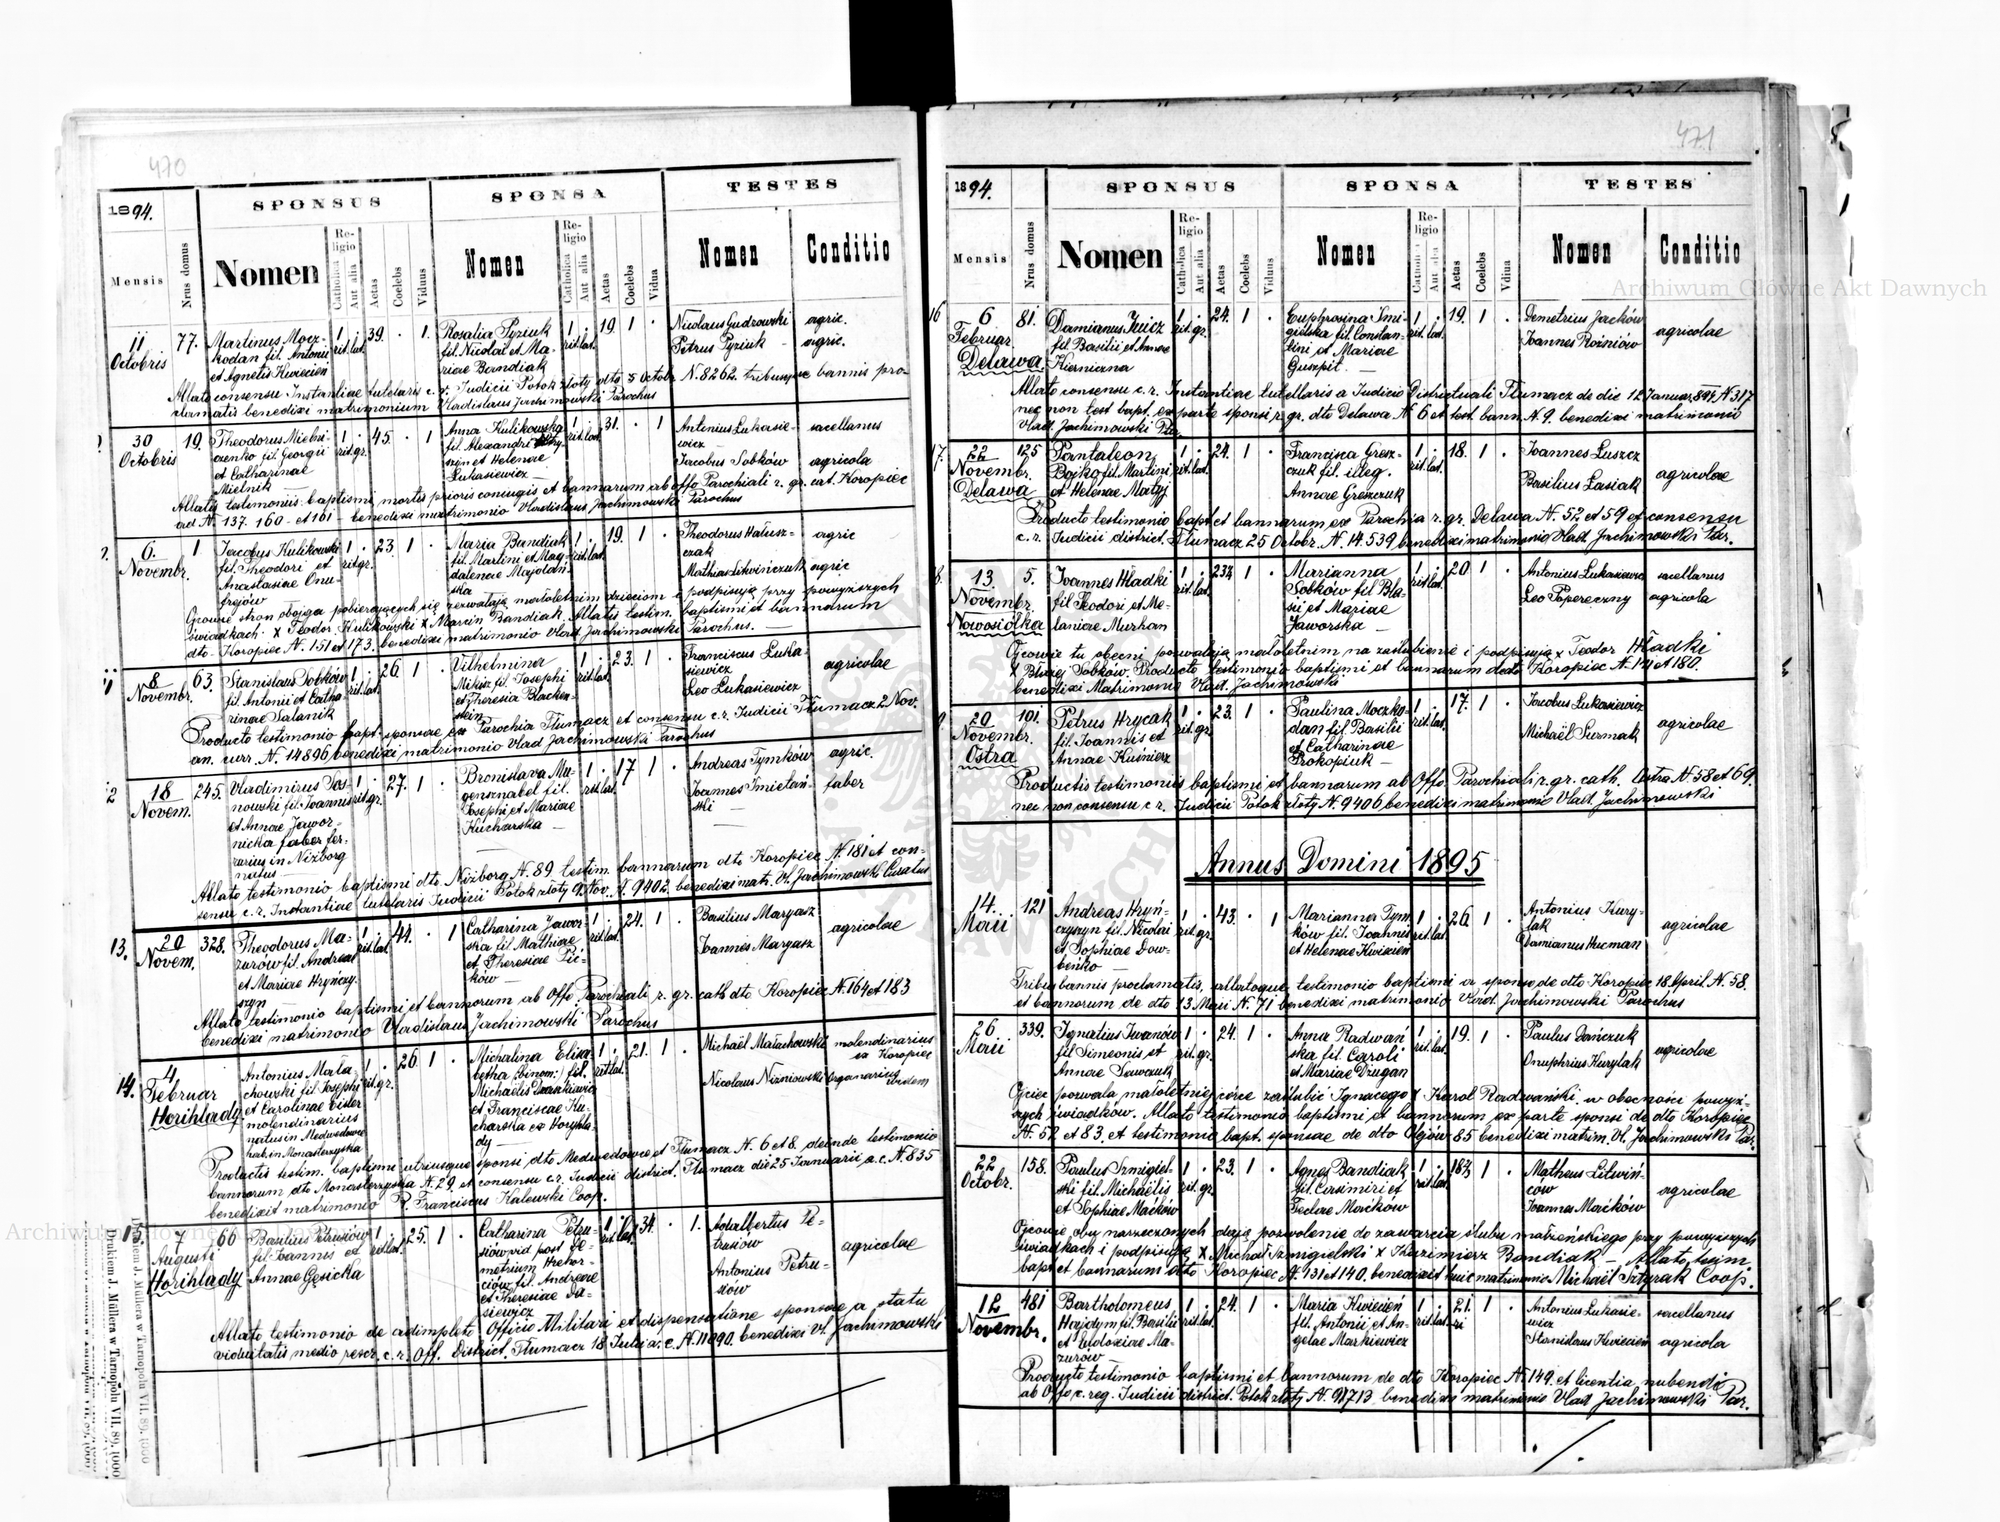 470
1894.
SPONSUS
SPONSA
TESTES
Mensis
Nrus domus
Nomen
Religio
Catholica
Aut alia
Aetas
Coelebs
Viduus
Nomen
Religio
Catholica
Aut alia
Aetas
Coelebs
Vidua
Nomen
Conditio
11 Octobris
77.
Martinus Mocz-
kodan fil. Antonii
et Agnetis Kwiecień
1 rit. lat.
39.
1.
Rosalia Pyziuk
fil. Nicolai et Ma-
riae Bandiak
1 rit. lat.
19.
1
Nicolaus Gudzowski agric.
Petrus Pyziuk agric.
Allato consensu Instantiae tutelaris c. r. Judicii Potok złoty dto 5 Octobr N. 8262. tribusque bannis pro-
clamatis benedixi matrimonium Vladislaus Jachimowski Parochus
30 Octobris
19.
Theodorus Mielni-
czenko fil. Georgii
et Catharinae
Mielnik
1 rit. gr.
45.
1
Anna Kulikowska
fil. Alexandri
et Helenae
Lukasiewicz
rit. lat.
31.
1
Antonius Lukasie-
wicz
sacellanus
Jacobus Sobków
agricola
Allatis testimoniis baptismi mortis prioris coniugis et bannorum ab offo Parochiali r. gr. cat. Koropiec
ad N. 137. 160 et 161 benedixi matrimonio Vladislaus Jachimowski Parochus
6. Novembr.
1
Jacobus Kulikowski
fil. Theodori et
Anastasiae Onu-
frejów
1 rit. gr.
23.
1
Maria Bandiak
fil. Martini et Mag-
dalenae Majolan-
ska
1 rit. lat.
19.
1
Theodorus Hałusz-
czak
agric
Mathias Litwińczuk agric
Ojcowie stron obojga pobierających się zezwalają małoletnim dzieciom i podpisują przy powyższych
świadkach. x Teodor Kulikowski x Marcin Bandiak. Allatis testim. baptismi et bannorum
dto Koropiec N. 151 et 173. benedixi matrimonio Vlad. Jachimowski Parochus.
8 Novembr.
63.
Stanislaus Sobków
fil. Antonii et Catha-
rinae Salanik
1 rit. lat.
26.
1
Vilhelmina
fil. Josephi
et Theresia Blacken-
stein
1 rit. lat.
23.
1
Franciscus Luka-
siewicz
Leo Lukasiewicz
agricolae
Producto testimonio bapt. sponsae ex Parochia Tłumacz et consensu c. r. Judicii Tłumacz 2 Nov.
an. curr. N. 14896 benedixi matrimonio Vlad Jachimowski Parochus
18 Novem.
245.
Vladimirus Sos-
nowski fil. Joannis
et Annae Jawor-
nicka faber fer-
rarius in Niżborg
natus
1 rit. gr.
27.
1
Bronislava Mu-
genschnabel fil.
Josephi et Mariae
Kucharska
1 rit. lat.
17
1
Andreas Tymków agric.
Joannes Smietań-
ski
faber
Allato testimonio baptismi dto Niżborg N. 89 testim. bannorum dto Koropiec N. 181 et con-
sensu c. r. Instantiae tutelaris Judicii Potok złoty 9 Nov. N. 9402. benedixi matr. Vl. Jachimowski Curatus
13.
20 Novem.
328.
Theodorus Ma-
zurów fil. Andreae
et Mariae Hryńczy-
szyn
rit. lat.
44.
1
Catharina Jawor-
ska fil. Mathiae
et Theresiae Pic-
ków
1 rit. lat.
24.
1
Basilius Margasz
Joannes Margasz
agricolae
Allato testimonio baptismi et bannorum ab Offo Parochiali r. gr. cath dto Koropiec N. 164 et 183
benedixi matrimonio Vladislaus Jachimowski Parochus
14.
4 Februar
Horihlady
Antonius Mała-
chowski fil. Josephi
et Carolinae Eisler
molendinarius
natus in Medwedowce
hab. in Monasterzyska
1 rit. gr.
26.
1
Michalina Elisa-
betha (binom.) fil.
Michaëlis
et Franciscae Ku-
charska ex Horyhla-
dy
1 rit. lat.
21.
1
Michaël Małachowski molendinarius
ex Koropiec
Nicolaus Niżniowski organarius
ibidem
Productis testim. baptismi utriusque sponsi dto Medwedowce et Tłumacz N. 6 et 8. deinde testimonio
bannorum dto Monasterzyska N. 29. et consensu c. r. Judicii district. Tłumacz die 25 Januarii a. c. N. 835
benedixit matrimonio P. Franciscus Kalewski Coop.
15.
7 Augusti
Horihlady
66
Basilius Petrusiów
fil. Joannes et
Annae Gęsicka
rit. lat.
25.
1
Catharina Petru-
siów vid post De-
metrium Hrehor-
ciów fil. Andreae
et Theresiae Da-
siewicz
1 rit. lat.
34.
1.
Adalbertus Pe-
trusiów
Antonius Petru-
siów
agricolae
Allato testimonio de adimpleto Officio Militari et dispensatione sponsae a statu
viduitatis medio rescr. c. r. Off. District. Tłumacz 18 Julii a. c. N. 11090. benedixi Vl. Jachimowski
Drukiem J. Müllera w Tarnopolu VII. 89. 1000
471
1894.
SPONSUS
SPONSA
TESTES
Mensis
Nrus domus
Nomen
Religio
Catholica
Aut alia
Aetas
Coelebs
Viduus
Nomen
Religio
Catholica
Aut alia
Aetas
Coelebs
Vidua
Nomen
Conditio
16
6 Februar.
Delawa
81.
Damianus
fil Basilii et Annae
Kierniena
1 rit. gr.
24.
1
Euphrosina Smi-
gielska fil. Constan-
tini et Mariae
Guszpit
1 rit. lat.
19.
1
Demetrius Jacków
Joannes Rożniow
agricolae
Allato consensu c. r. Instantiae tutellaris a Judicio Districtuali Tłumacz de die 12 Januar 894 N 317
nec non test bapt. ex parte sponsi r. gr. dto Delawa N. 6 et test bann. N. 9. benedixi matrimonio
Vlad. Jachimowski Par.
17.
22 Novembr.
Delawa
125
Pantaleon
Bojko fil. Martini
et Helenae Matyj
1 rit. lat.
24.
1
Francisca Gresz-
czuk fil. illeg.
Annae Greszczuk
1 rit. lat.
18.
1
Joannes Luszcz
Basilius Lasiak
agricolae
Producto testimonio bapt et bannorum ex Parochia r. gr. Delawa N. 52 et 59 et consensu
c. r. Judicii district. Tłumacz 25 Octobr. N. 14.539 benedixi matrimonio Vlad. Jachimowski Par.
13. Novembr.
Nowosiółka
5.
Joannes Hładki
fil Teodori et Me-
laniae Murhan
1 rit. lat.
1
Marianna
Sobków fil Bla-
sii et Mariae
Jaworska
1 rit. lat.
20
1
Antonius Lukasiewicz sacellanus
Leo Popereczny agricola
Ojcowie tu obecni pozwalają małoletnim na zaślubienie i podpisują x Teodor Hładki
x Błażej Sobków. Producto testimonio baptismi et bannorum dto Koropiec N. 171 et 180.
benedixi Matrimonio Vlad. Jachimowski
20 Novembr.
Ostra
101.
Petrus Hrycak
fil. Joannis et
Annae Kuśnierz
1 rit. gr.
23.
1
Paulina Moczko-
dan fil. Basilii
et Catharinae
Prokopiuk
1 rit. lat.
17.
1
Jacobus Lukasiewicz
Michaël Surmak
agricolae
Productis testimoniis baptismi et bannorum ab Offo. Parochiali r. gr. cath. Ostra N. 58 et 69.
nec non consensu c. r. Judicii Potok złoty N. 9406 benedixi matrimonio Vlad. Jachimowski
Annus Domini 1895
14. Maii
121
Andreas Hryń-
czyszyn fil. Nicolai
et Sophiae Dow-
beńko
1 rit. gr.
43.
1
Marianna Tym-
ków fil. Joannes
et Helenae Kwiecień
1 rit. lat.
26.
1
Antonius Kury-
lak
Damianus Hucman
agricolae
Tribus bannis proclamatis, allatoque testimonio baptismi a sponso de dto Koropiec 18 April. N. 58.
et bannorum de dto 13 Maii N. 71 benedixi matrimonio Vlad. Jachimowski Parochus
26 Maii
339.
Ignatius Iwanów
fil Simeonis et
Annae Sawczuk
1 rit. gr.
24.
1
Anna Radwań-
ska fil. Caroli
et Mariae Dżugan
1 rit. lat.
19.
1
Paulus Dańczuk
Onuphrius Kurylak
agricolae
Ojciec pozwala małoletniej córce zaślubić Ignacego x Karol Radwański. w obecności powyż-
szych świadków. Allato testimonio baptismi et bannorum ex parte sponsi de dto Koropiec
N. 52 et 83. et testimonio bapt. sponsae de dto Olejów 85 benedixi matrim. Vl. Jachimowski Par.
22 Octobr.
158.
Paulus Smigiel-
ski fil. Michaëlis
et Sophiae Maćków
1 rit. gr.
23.
1
Agnes Bandiak
fil. Casimiri et
Teclae Maćków
1 rit. lat.
1
Matheus Litwiń-
ców
Joannes Maćków
agricolae
Ojcowie oby narzeczonych dają pozwolenie do zawarcia ślubu małżeńskiego przy powyższych
świadkach i podpisują x Michał Szmigielski x Kazimierz Bandiak – Allato testim.
bapt et bannorum dto Koropiec N. 131 et 140. benedixit huic matrimonio Michaël Sztyrak Coop.
12 Novembr.
481
Bartholomeus
Hajdym fil. Basilii
et Eudoxiae Ma-
zurów
1 rit. lat.
24.
1
Maria Kwiecień
fil. Antonii et An-
gelae Markiewicz
1 rit. lat.
21.
1
Antonius Lukasie-
wicz
sacellanus
Stanislaus Kwiecień agricola
Producto testimonio baptismi et bannorum de dto Koropiec N. 149. et licentia nubendi
ab Offo c. reg. Judicii district. Potok złoty N. 91713. benedixi matrimonio Vlad Jachimowski Par.
Archiwum Główne Akt Dawnych
Archiwum Główne Akt Dawnych